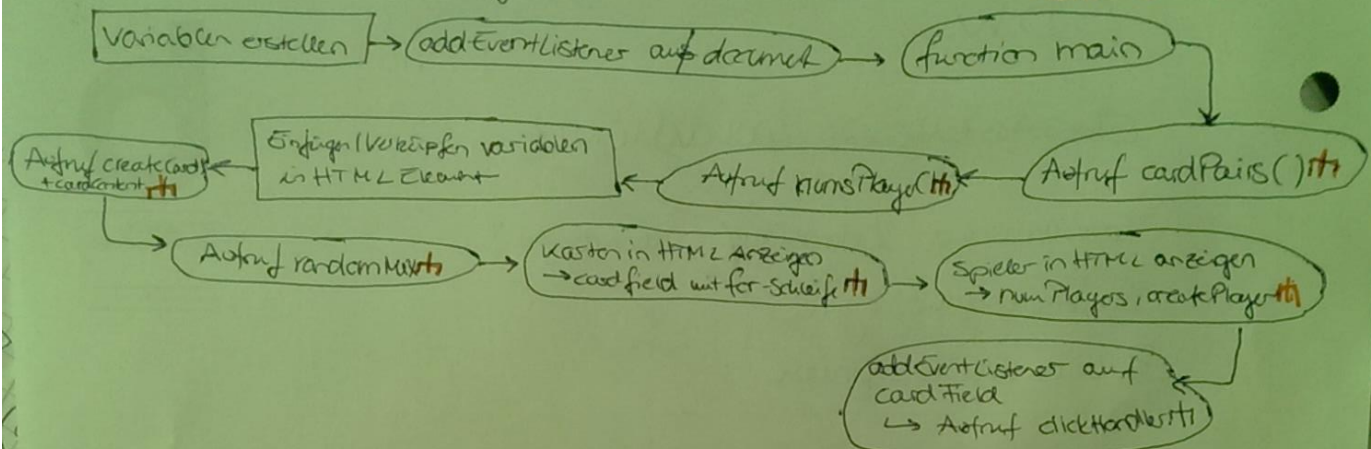 Variablen erstellen
addEventListener auf documet
function main
Aufruf cardPairs()
Aufruf numsPlayer(
Einfügen/Verküpfen variablen
in HTML Element
Aufruf createCard
+ cardContent
Aufruf randomMix
Karten in HTML Anzeigen
→ cardfield mit for-Schleife
Spieler in HTML anzeigen
→ numPlayers, createPlayer
addEventListener auf
cardField
↳ Aufruf clickHandler